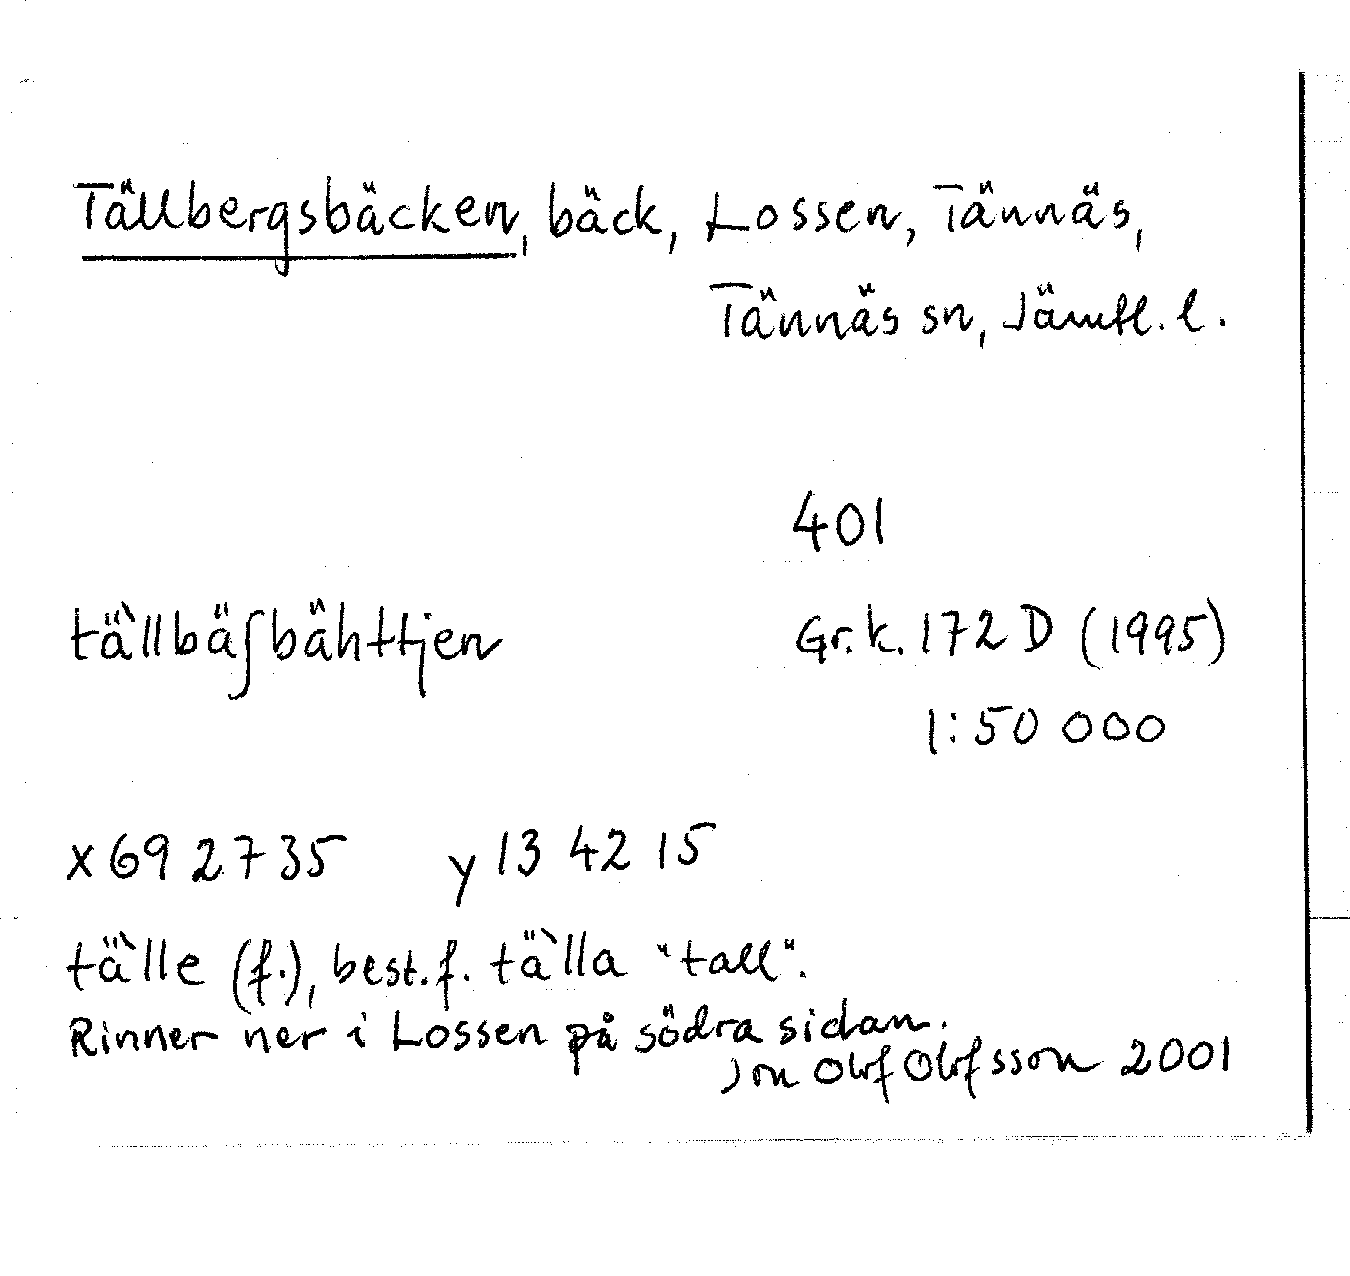 Tällbergsbäcken, bäck, Lossen, Tännäs,
Tännäs sn, Jämtl. l.
401
tä̀llbäʃbähttjen
Gr.k. 172 D (1995)
1:50 000
x 69 27 35 y 13 42 15
tä̀lle (f.), best.f. tä̀lla "tall".
Rinner ner i Lossen på södra sidan.
Jon Olof Olofsson 2001